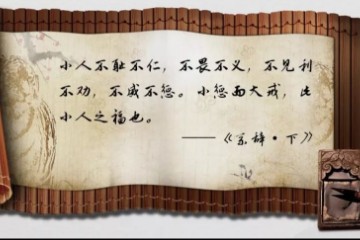 小人不耻不仁，不畏不义，不见利
不劝，不威不惩。小惩而大戒，此
小人之福也。
——《系辞·下》